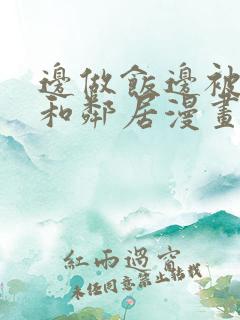 邊做飯邊被
和鄰居漫畫
紅雨過窗
未经同意禁止转载